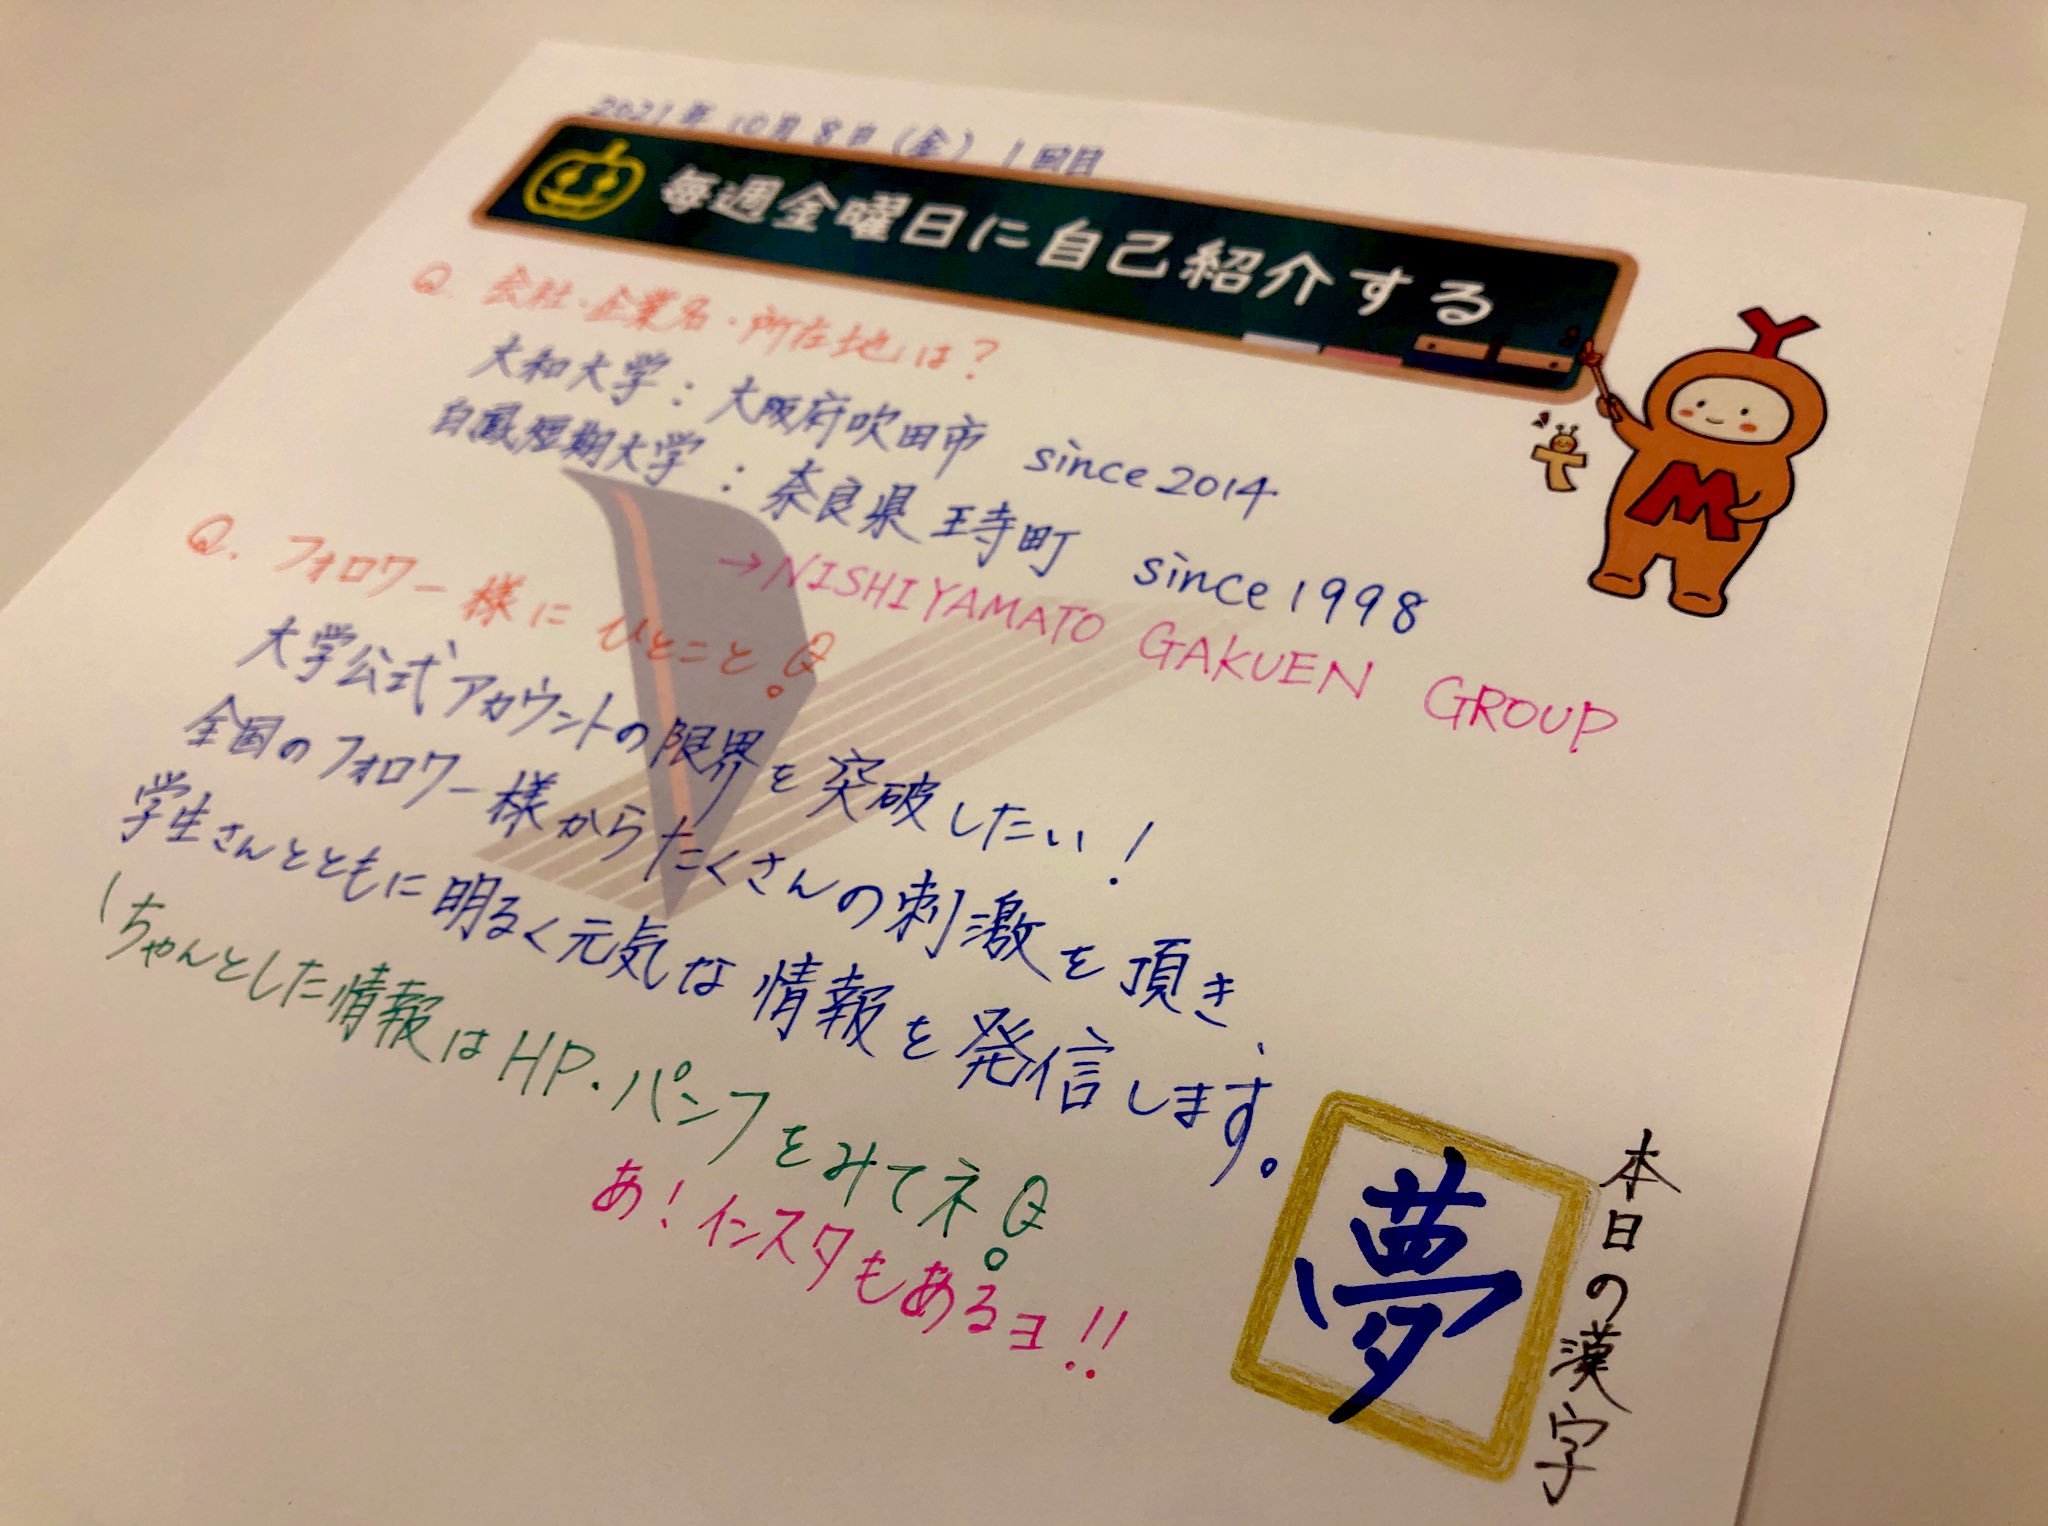 2021年10月8日(金) 1回目
毎週金曜日に自己紹介する
Q. 会社・企業名・所在地は?
大和大学:大阪府吹田市 since 2014
白鳳短期大学:奈良県王寺町 since 1998
→NISHIYAMATO GAKUEN GROUP
Q. フォロワー様にひとこと
大学公式アカウントの限界を突破したい!
全国のフォロワー様からたくさんの刺激を頂き、
学生さんとともに明るく元気な情報を発信します。
ちゃんとした情報はHP・パンフをみてネ
あ!インスタもあるヨ!!
本日の漢字
夢
M